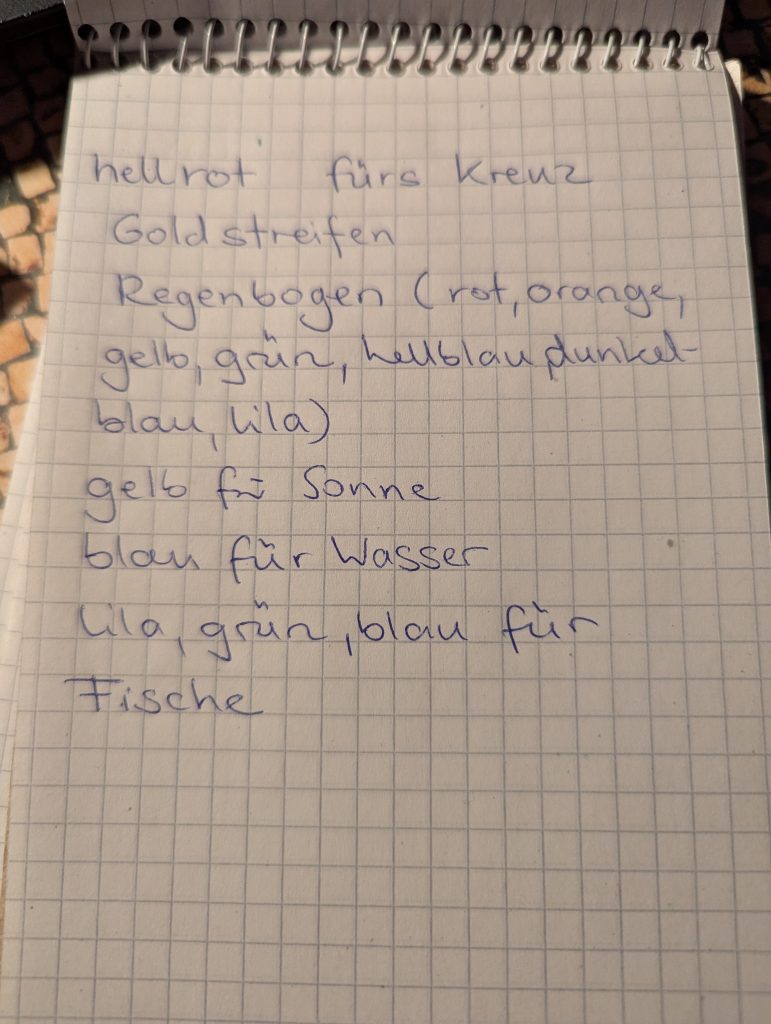 hellrot fürs Kreuz
Goldstreifen
Regenbogen (rot, orange,
gelb, grün, hellblau, dunkel-
blau, lila)
gelb für Sonne
blau für Wasser
lila, grün, blau für
Fische